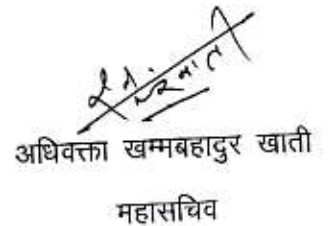 अधिवक्ता खम्मबहादुर खाती
महासचिव